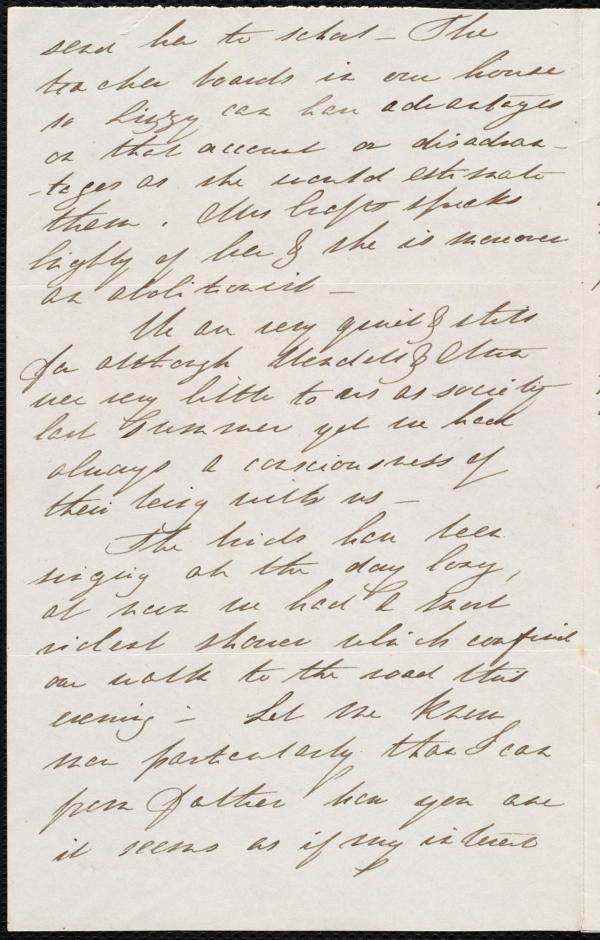 send her to school – The
teacher boards in our house
so Lizzy can have advantages
on that account or disadvan-
-tages as she would estimate
them. Mrs speaks
highly of her & she is moreover
an abolitionist –
We are very quiet & still
for although Wendell & Ann
were very little to us as society
last Summer yet we had
always a consciousness of
their being with us –
The birds have been
singing all the day long,
at noon we had a most
violent shower which confined
our walk to the road this
evening – Let me know
more particularly than I can
from Father how you are
it seems as if my interest